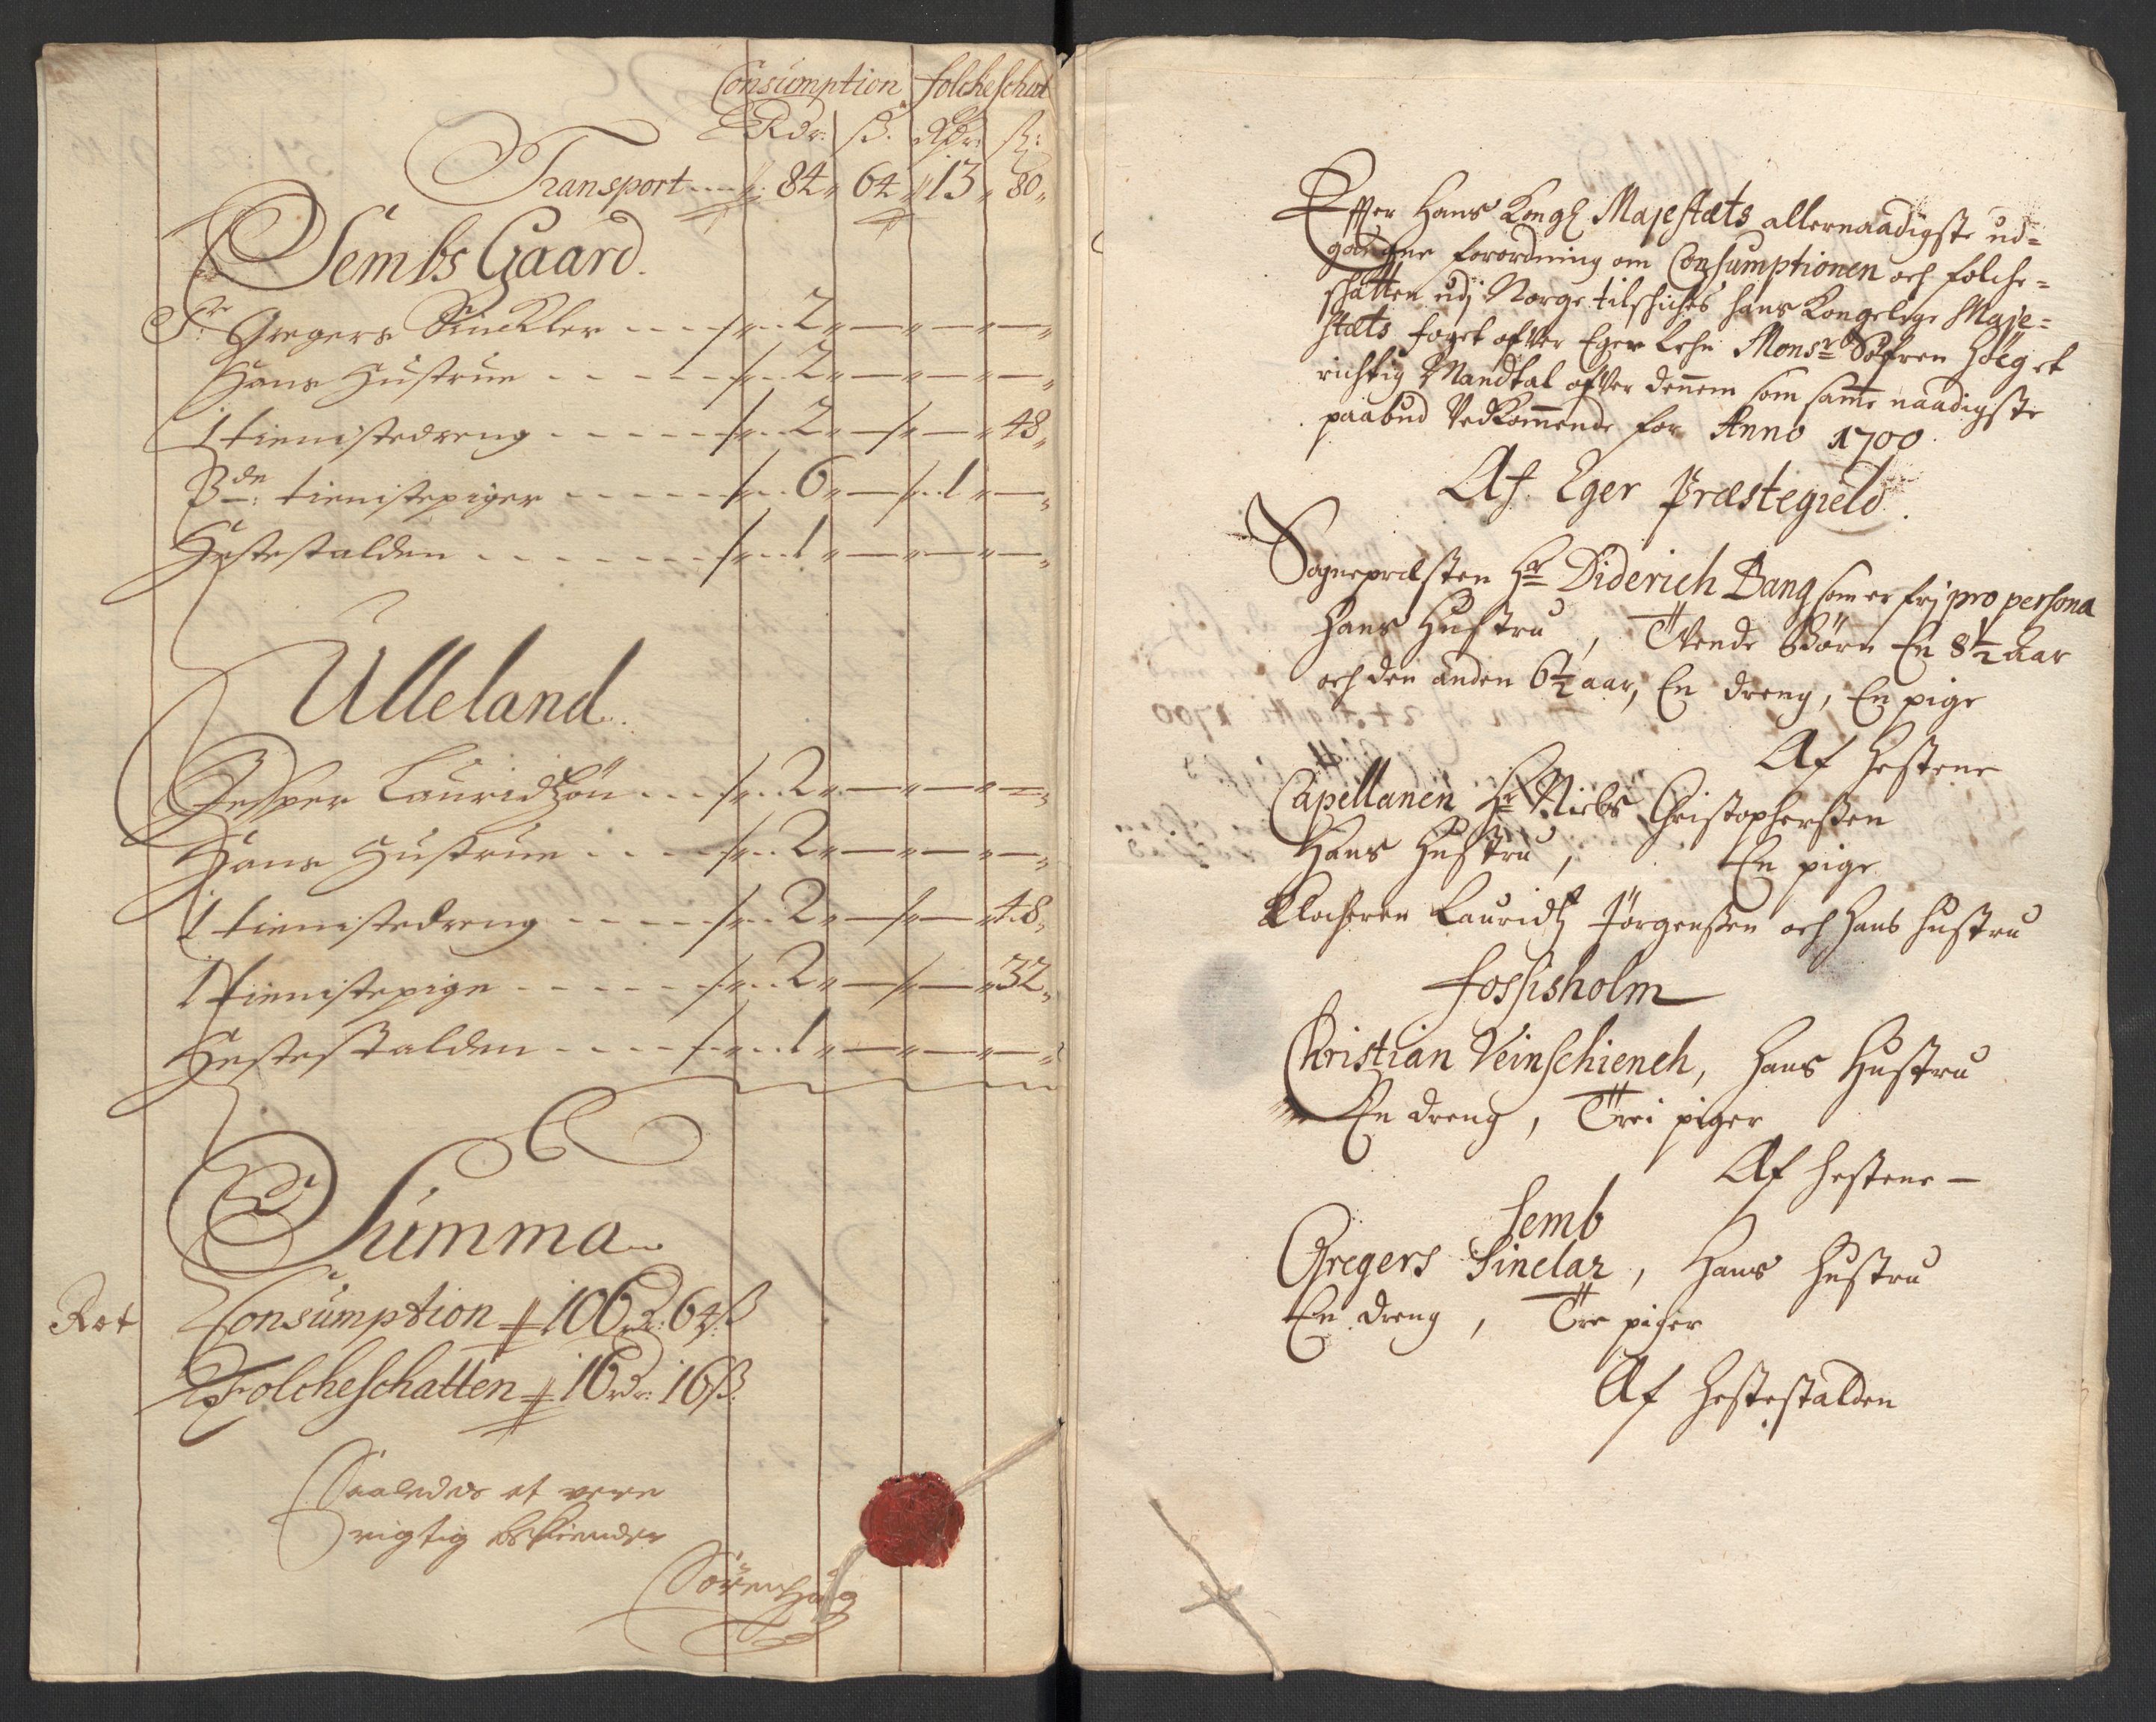 Consumption Folckeschat
Rdr: ß. Rdr: ß:
Transport 84 64 13 80
Sembs Gaard.
Sr: Gregers Sinckler 2
Hans Hustrue 2
1 tienistedreng 2 48
3de: tienistepiger 6 1
Hestestalden 1
Ulleland
Jesper Lauridtzön 2
Hans Hustrue 2
1 tienistedreng 2 48
1 tienistepige 2 32
Hestestalden 1
Summa
Consumption 106 Rdr: 64 ß
Folckeschatten 16 Rdr: 16 ß.
Saaledes at vere
rigtig bekiender
Sören Höeg
Effter Hans Kongl Majestæts allernaadigste ud=
gangne forordning om Consumptionen och folche=
schatten udj Norge tilschiches hans Kongelige Maje=
stæts foget ofver Eger Lehn Monsr Söfren Höeg et
richtig Mandtal ofver dennem som samme naadigste
paabud Vedkommende for Anno 1700.
Af Eger Præstegield.
Sognepræsten Hr Diderich Bang som er frj pro persona
Hans Hustru, Tvende Börn En 8½ Aar
och den anden 6½ aar, En dreng, En pige
Af Hestene
Capellanen Hr Niels Christophersen
Hans Hustru, En pige
Klocheren Lauridtz Jörgensen och Hans Hustru
Fossisholm
Christian Veinschiench, Hans Hustru
En dreng, Trei piger
Af Hestene —
Semb
Gregers Sinclar, Hans Hustru
En dreng, Tre piger
Af Hestestalden